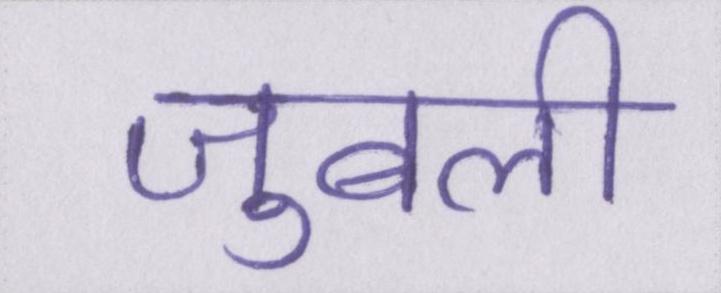 जुबली